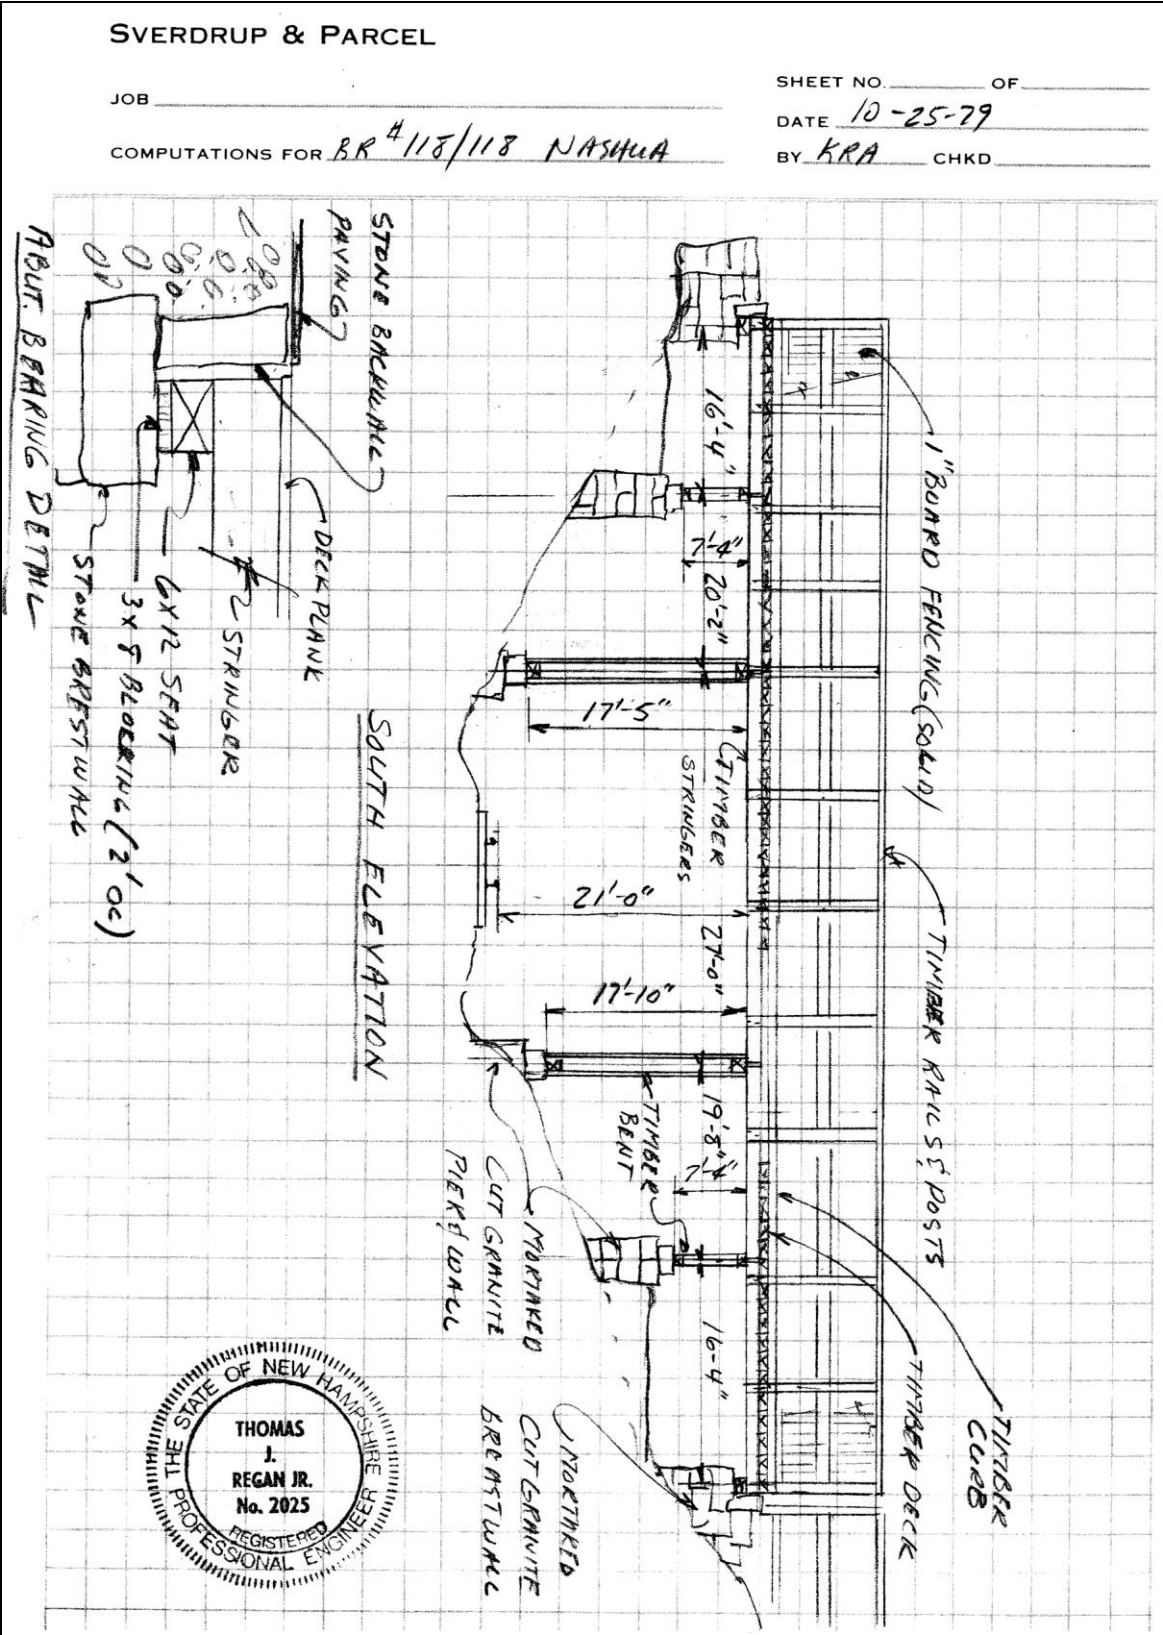 SVERDRUP & PARCEL
JOB
SHEET NO. OF
DATE 10-25-79
COMPUTATIONS FOR BR #118/118 NASHUA
BY KRA CHKD
1" BOARD FENCING (SOLID)
TIMBER RAILS & POSTS
TIMBER
CURB
TIMBER DECK
16'-4"
20'-2"
27'-0"
19'-8"
16-4"
7'-4"
17'-5"
TIMBER
STRINGERS
21'-0"
17'-10"
TIMBER
BENT
7'-4"
MORTARED
CUT GRANITE
PIER & WALL
MORTARED
CUT GRANITE
BREASTWALL
SOUTH ELEVATION
STONE BACKWALL
PAVING
DECK PLANK
STRINGER
6X12 SEAT
3X8 BLOCKING (2'OC)
STONE BRESTWALL
ABUT. BEARING DETAIL
THE STATE OF NEW HAMPSHIRE
THOMAS
J.
REGAN JR.
No. 2025
REGISTERED
PROFESSIONAL ENGINEER